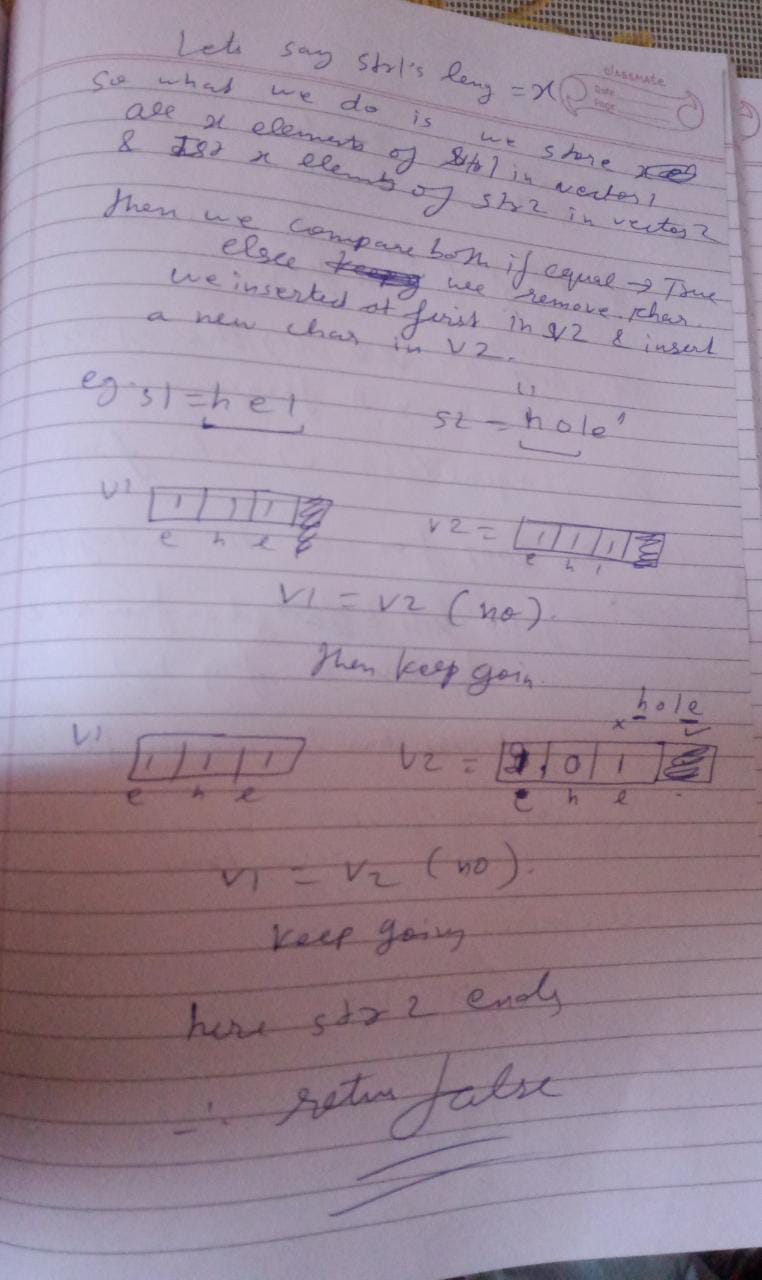 Lets say str1's leng = x
classmate
Date
Page
So what we do is we store
all x elements of str1 in vector1
& 1st x elements of str2 in vector2
then we compare both if equal → True
else we remove char
we inserted at first in V2 & insert
a new char in V2.
eg. s1 = h e l
s2 = h o l e
V1 1 1 1
e h e
V2 = 1 1 1
e h l
V1 = V2 (no).
then keep goin
h o l e
x ✓
V1 1 1 1
e h e
V2 = 0 1
e h e
V1 = V2 (no).
keep going
here str2 ends
∴ return false